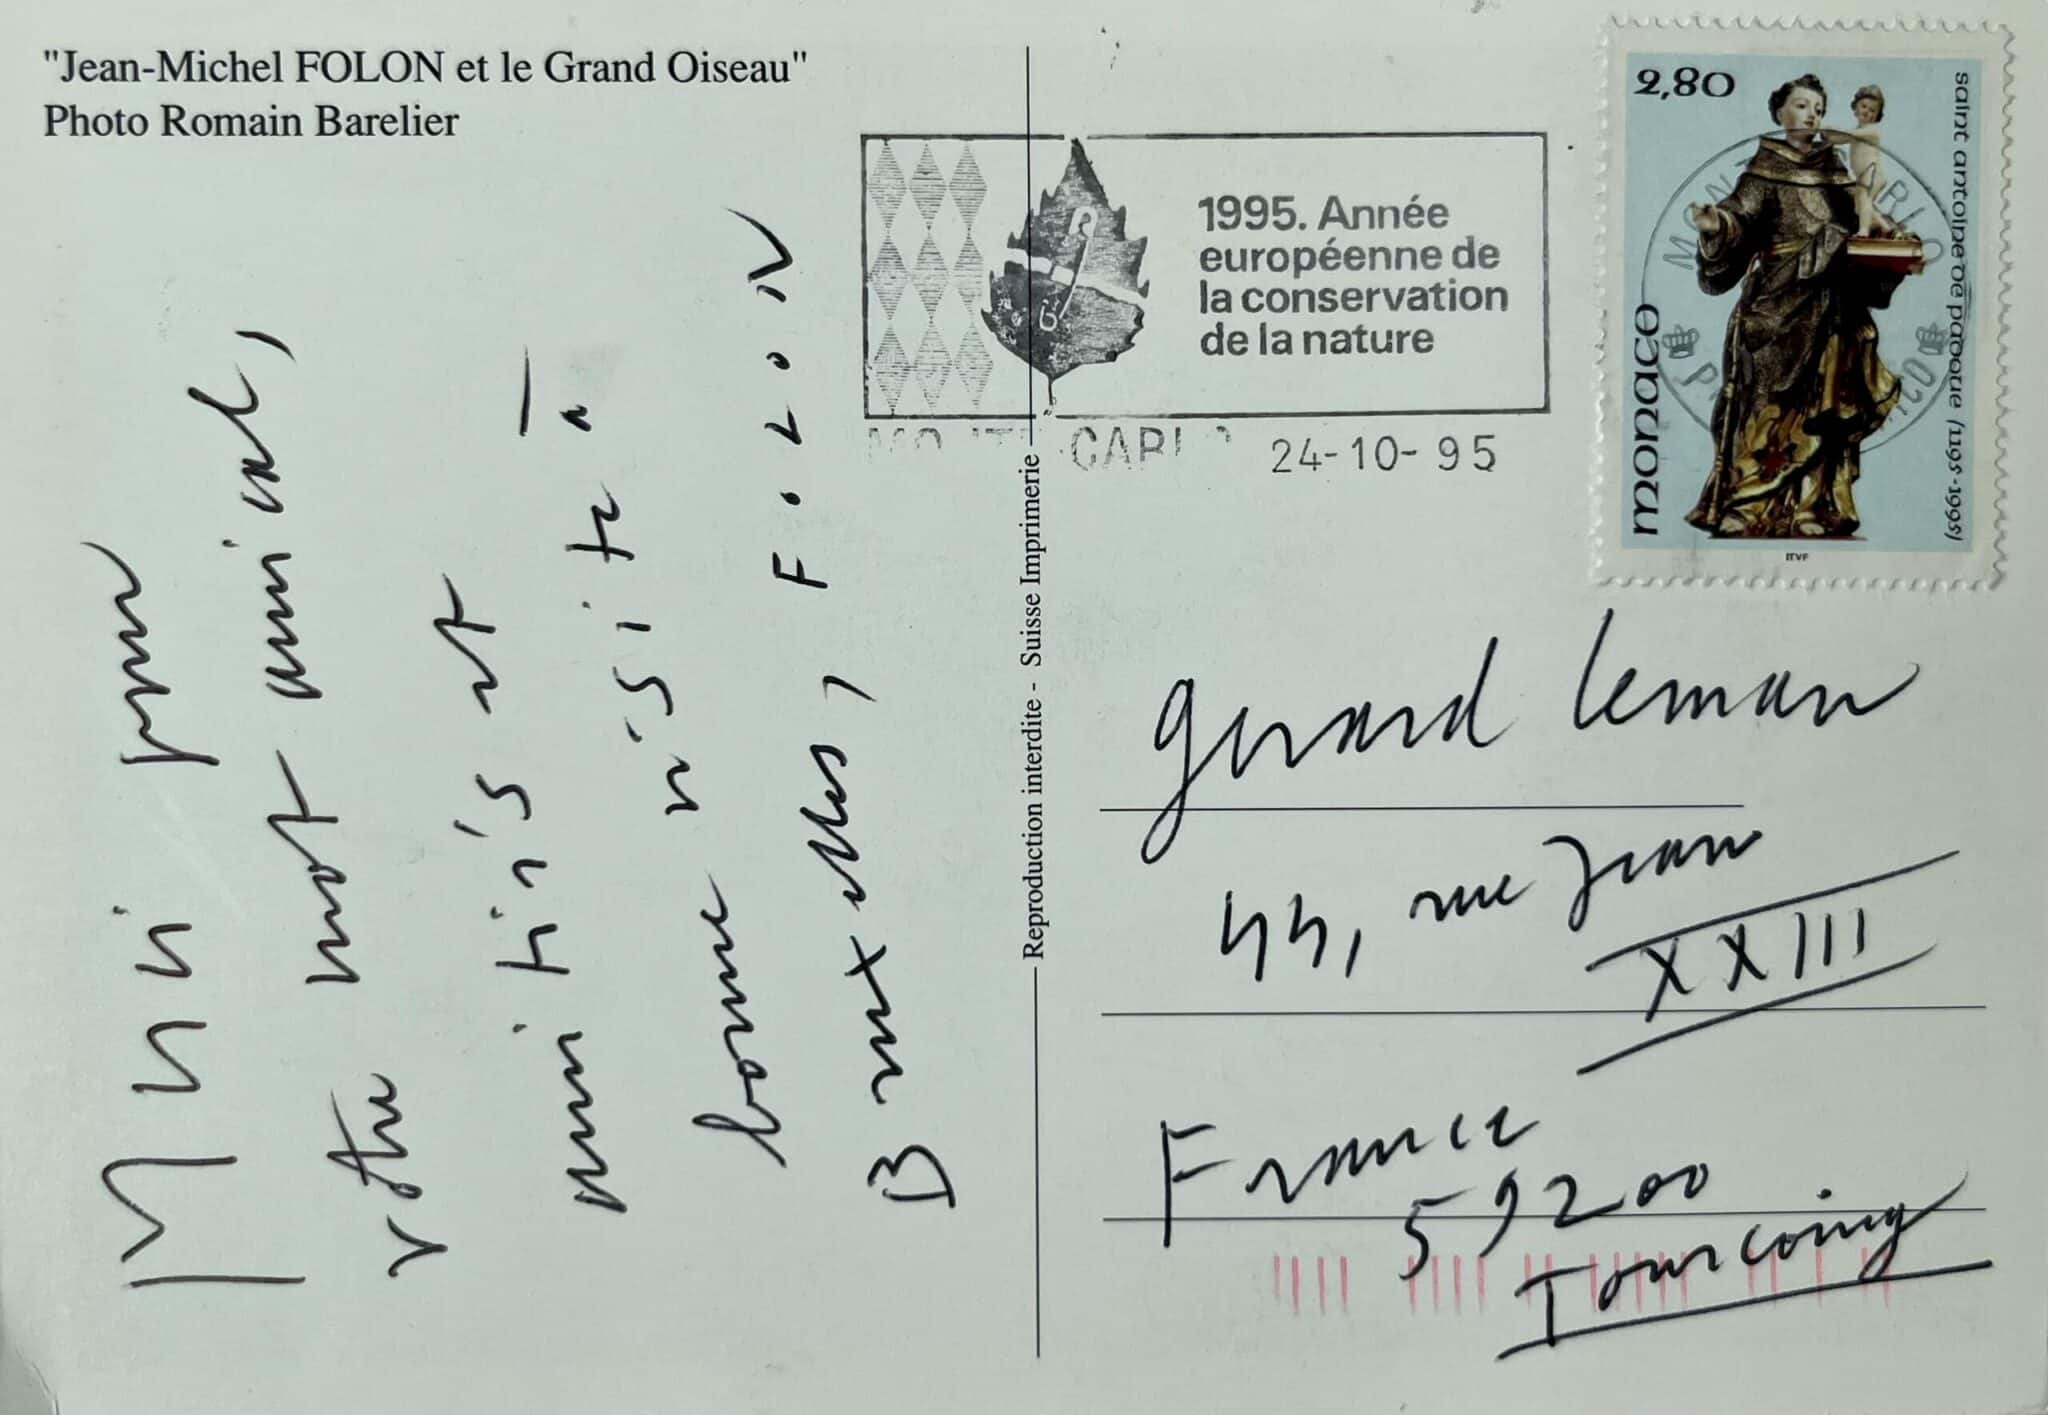 "Jean-Michel FOLON et le Grand Oiseau"
Photo Romain Barelier
Merci pour
votre mot amical,
amitiés et
bonne visite à
Bruxelles, FOLON
Reproduction interdite - Suisse Imprimerie
1995. Année
européenne de
la conservation
de la nature
MONTE-CARLO 24-10-95
2,80
saint antoine de padoue (1195-1995)
monaco
ITVF
MONTE CARLO
gerard leman
44, rue Jean
XXIII
France
59200
Tourcoing